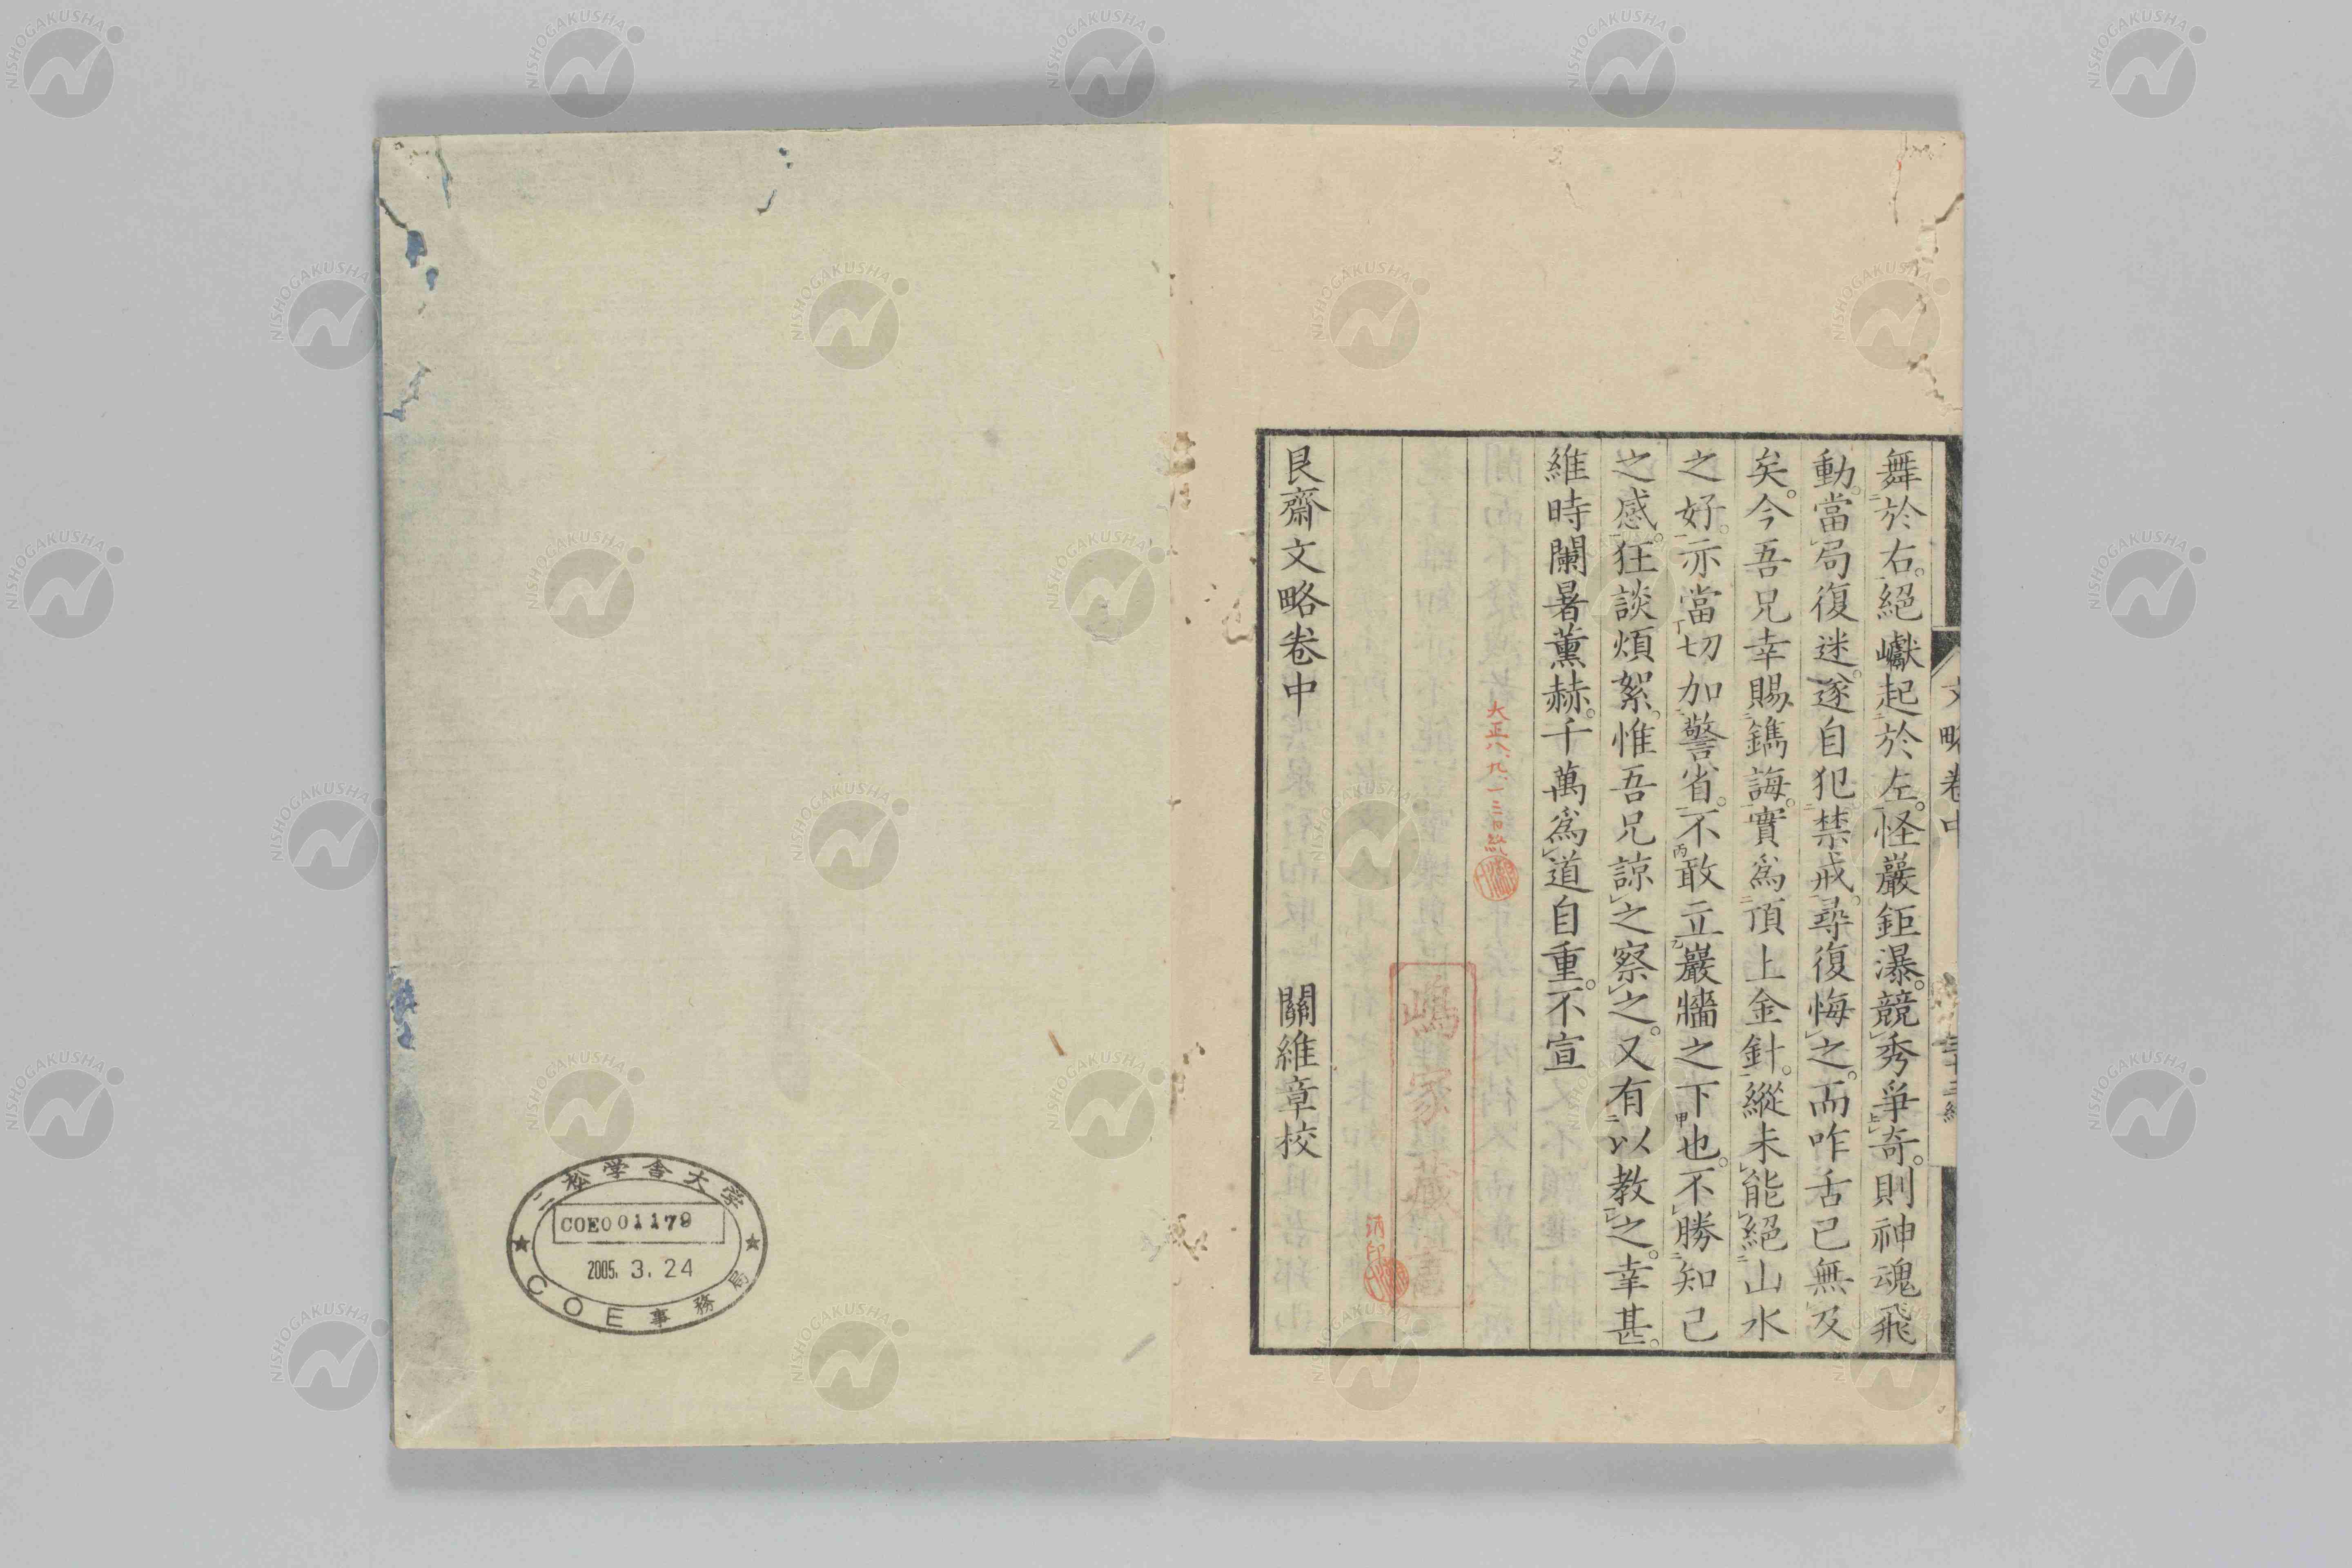 舞於右。絕巘起於左。怪巖鉅瀑。競秀爭奇。則神魂飛
動。當局復迷。遂自犯禁戒。尋復悔之。而咋舌已無及
矣。今吾兄幸賜鐫誨。實爲頂上金針。縱未能絕山水
之好。亦當切加警省。不敢立巖牆之下也。不勝知己
之感。狂談煩絮。惟吾兄諒之察之。又有以教之。幸甚。
維時闌暑薰赫。千萬爲道自重。不宣
大正八、九、一三日終
艮齋文略卷中 關維章校
文略卷中
二松学舎大学
COE001179
2005. 3. 24
COE事務局
NISHOGAKUSHA